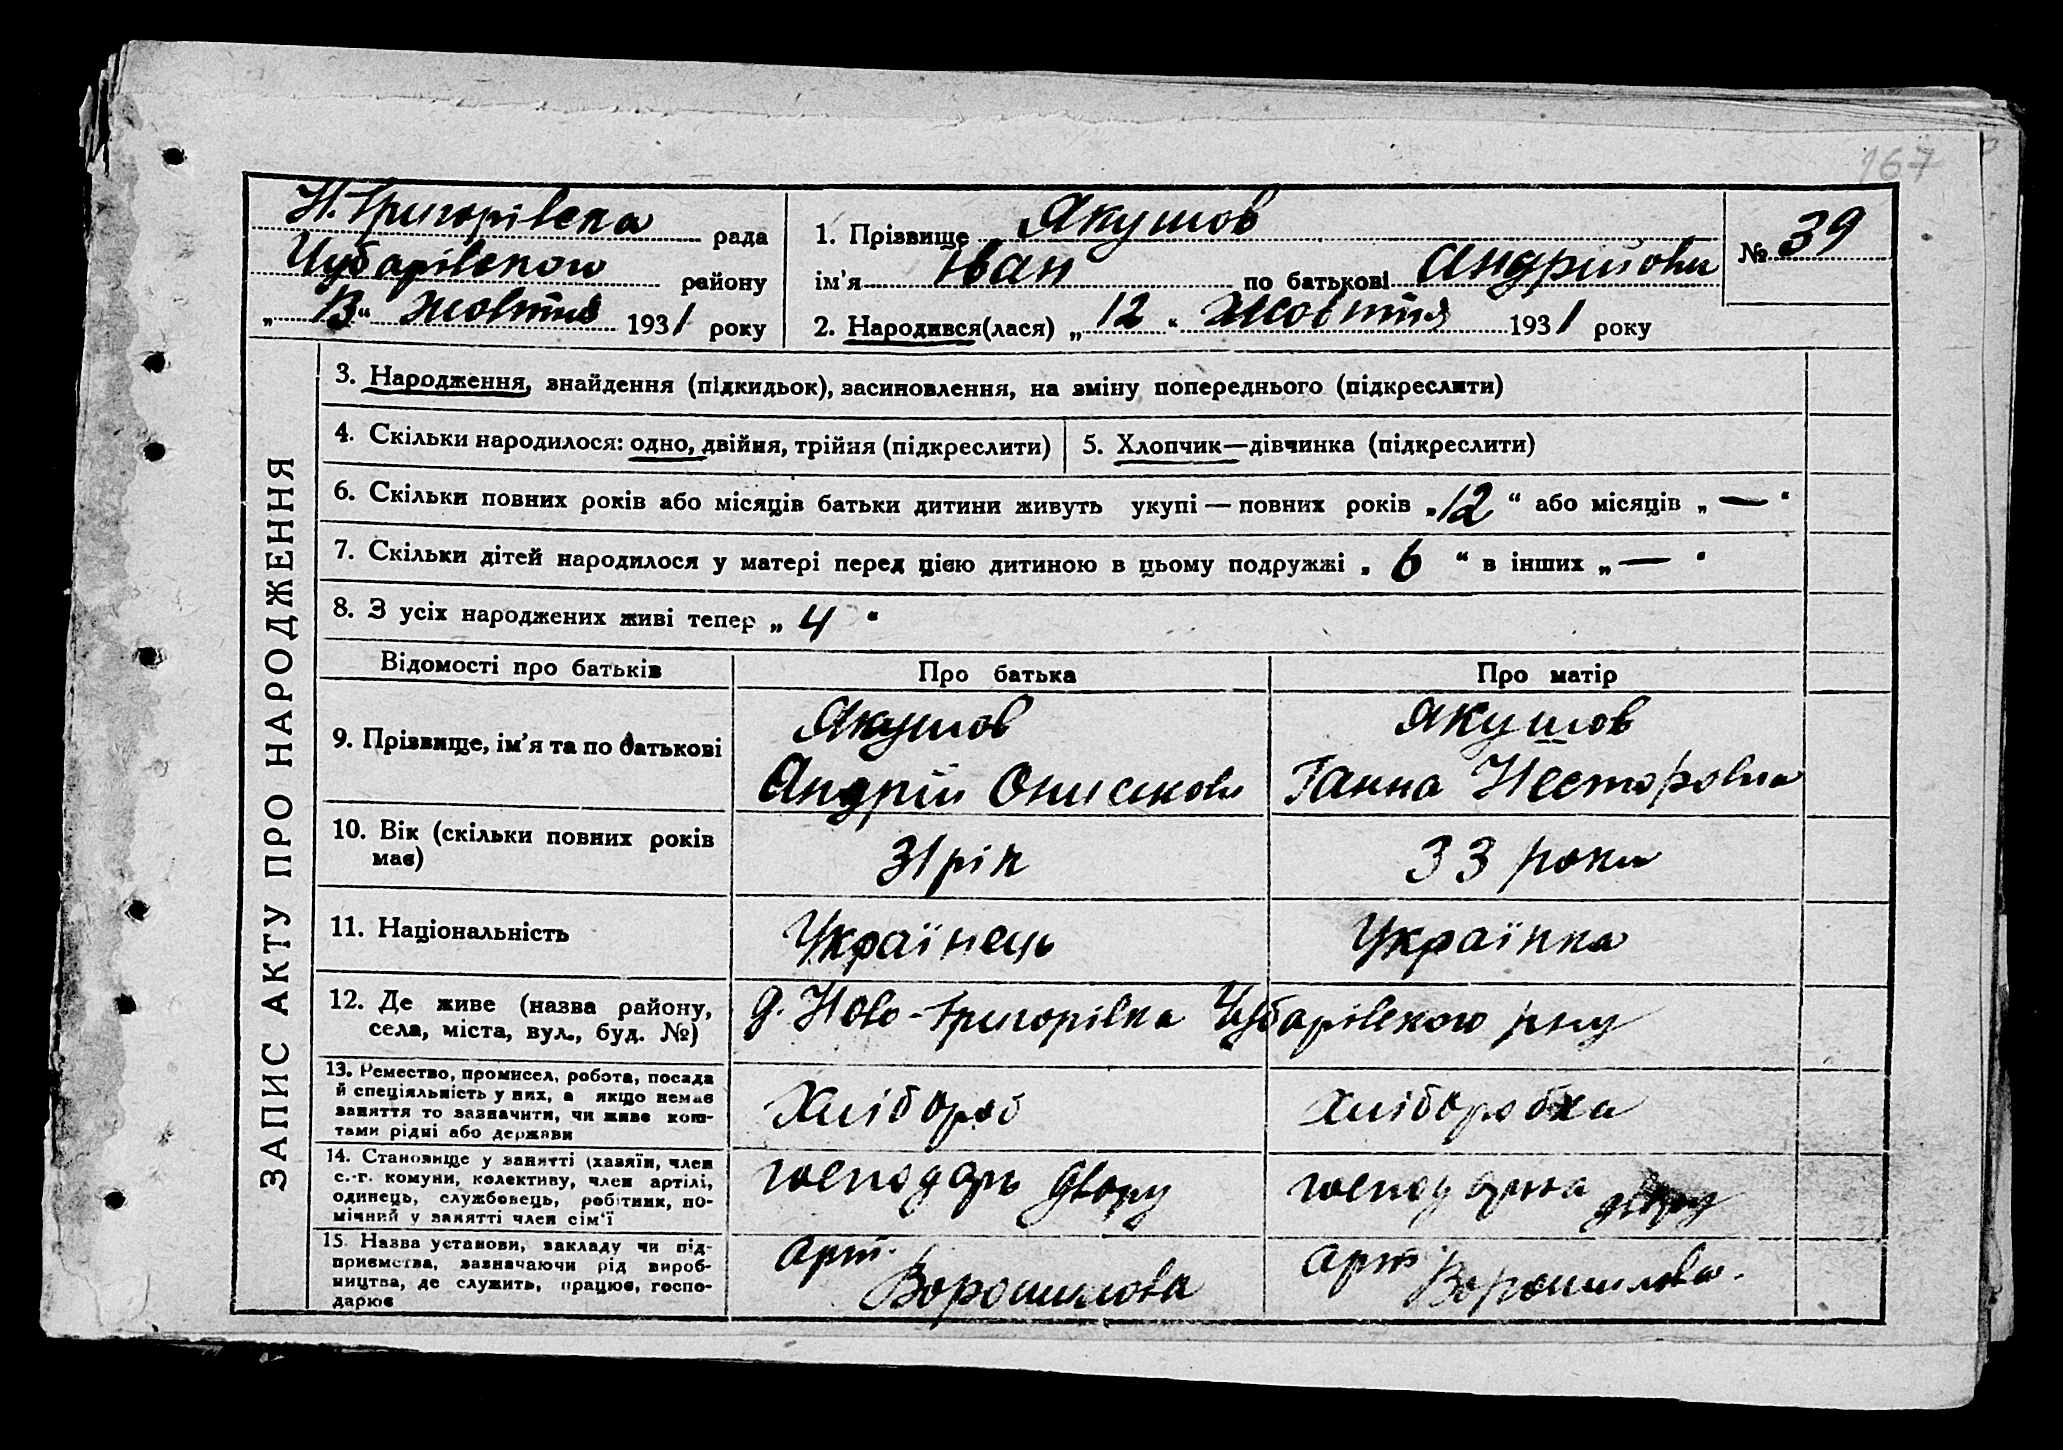 167
Н. Григорівська рада
Чубарівського району
„13“ жовтня 1931 року
1. Прізвище Якушов
ім’я Іван по батькові Андрійович
2. Народився(лася) „12“ жовтня 1931 року
№ 39
ЗАПИС АКТУ ПРО НАРОДЖЕННЯ
3. Народження, знайдення (підкидьок), засиновлення, на зміну попереднього (підкреслити)
4. Скільки народилося: одно, двійня, трійня (підкреслити)
5. Хлопчик—дівчинка (підкреслити)
6. Скільки повних років або місяців батьки дитини живуть укупі — повних років „12“ або місяців „—“
7. Скільки дітей народилося у матері перед цією дитиною в цьому подружжі „6“ в інших „—“
8. З усіх народжених живі тепер „4“
Відомості про батьків Про батька Про матір
9. Прізвище, ім’я та по батькові
Якушов
Андрій
Якушов
Ганна Несторовна
10. Вік (скільки повних років
має)
31 рік
33 роки
11. Національність
Українець
Українка
12. Де живе (назва району,
села, міста, вул., буд. №)
Ново-Григорівка Чубарівського р-ну
13. Ремество, промисел, робота, посада
й спеціяльність у них, а якщо немає
заняття то зазначити, чи живе кош-
тами рідні або держави
Хлібороб
хліборобка
14. Становище у занятті (хазяїн, член
с.-г. комуни, колективу, член артілі,
одинець, службовець, робітник, по-
мічний у занятті член сім’ї
господарь двору
господарка двору
15. Назва установи, закладу чи під-
приємства, зазначаючи рід вироб-
ництва, де служить, працює, госпо-
дарює
арт.
Ворошилова
арт.
Ворошилова.